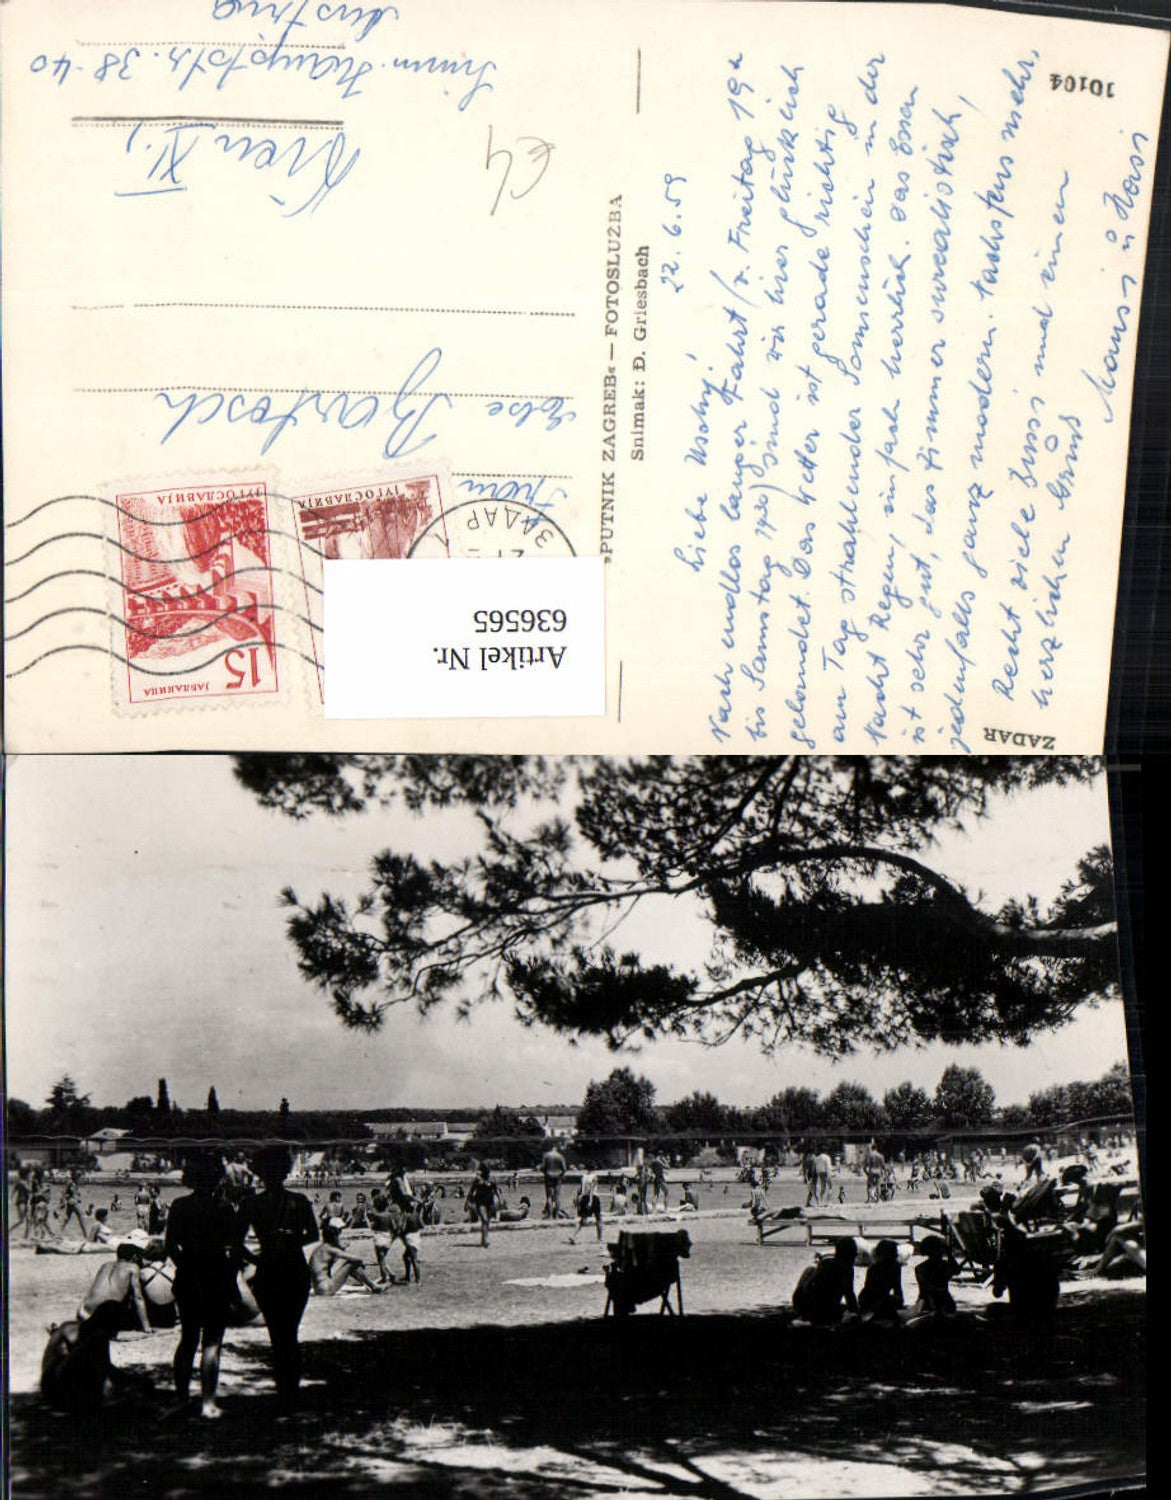 ZADAR
10104
22.6.59
Liebe Uschi,
Nach endlos langer Fahrt (v. Freitag 19h
bis Samstag 1930) sind wir hier glücklich
gelandet. Das Wetter ist gerade richtig
am Tag strahlender Sonnenschein in der
Nacht Regen, einfach herrlich. Das Essen
ist sehr gut, das Zimmer surrealistisch,
jedenfalls ganz modern. Nächstens mehr.
Recht viele Bussi und einen
herzlichen Gruß
Mausi u Hasi
»SPUTNIK ZAGREB« — FOTOSLUŽBA
Snimak: Đ. Griesbach
ЈУГОСЛАВИЈА
15
ЈАБЛАНИЦА
ЈУГОСЛАВИЈА
ЗАДАР
Else Bartosch
Wien XI.,
Simm. Hauptstr. 38-40
Austria
€4
Artikel Nr.
636565